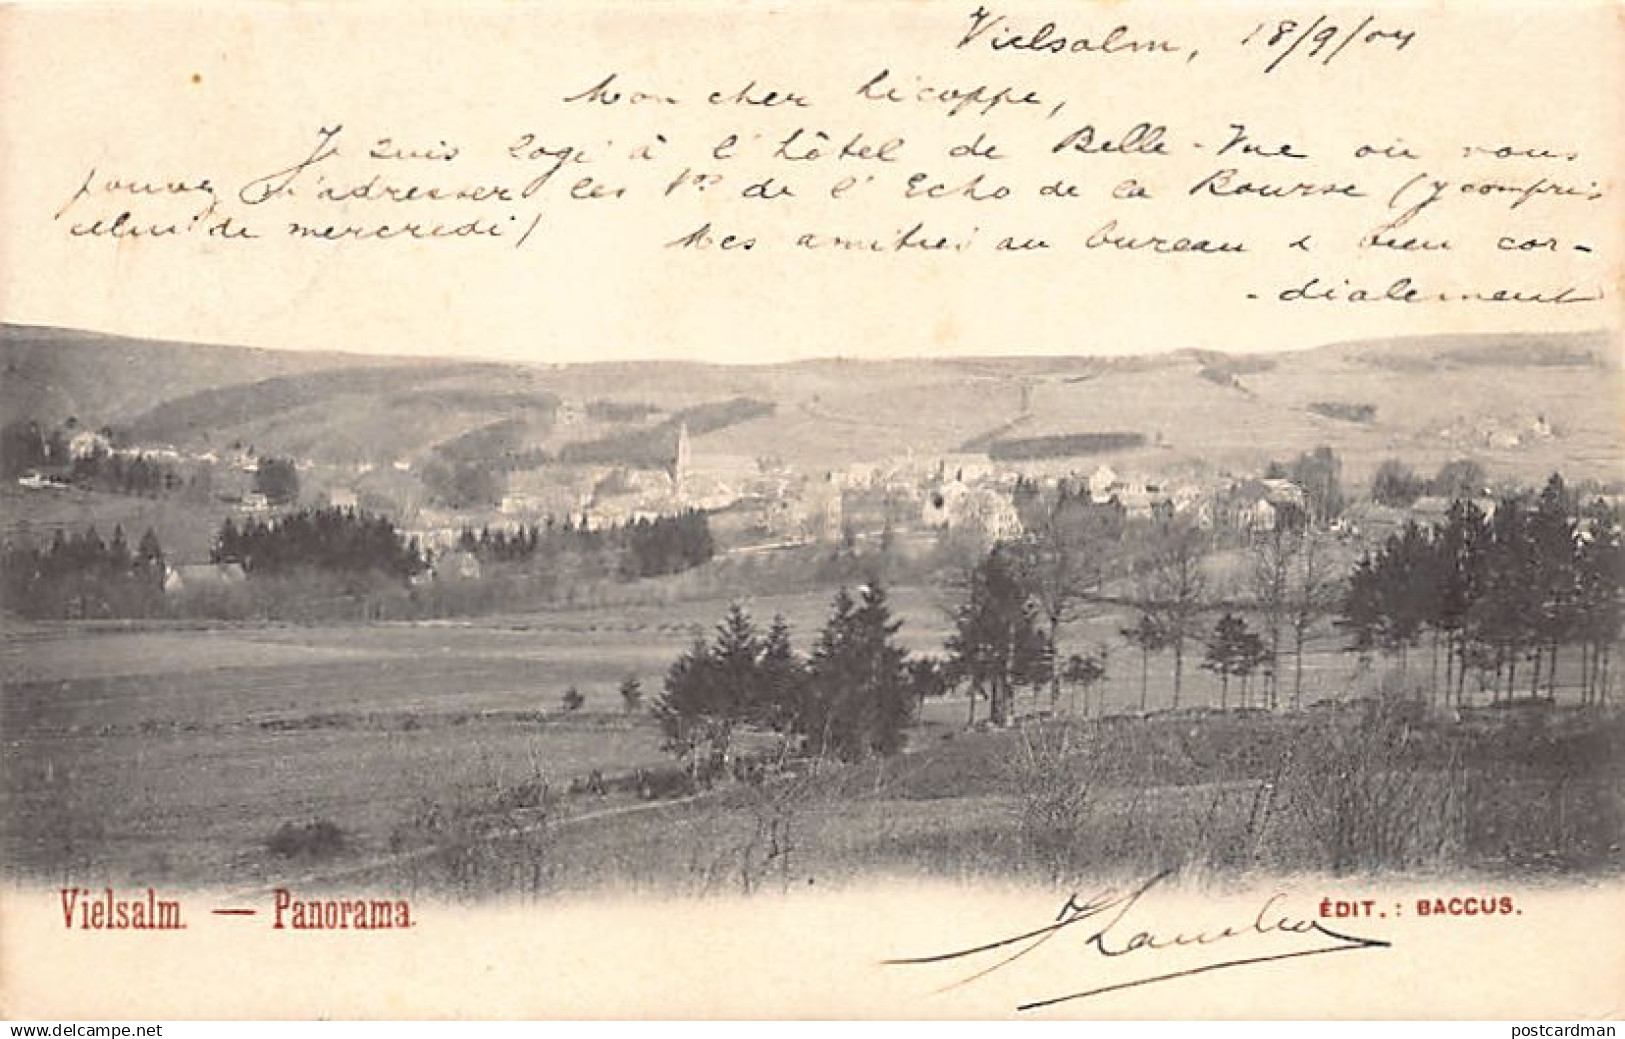 Vielsalm, 18/9/04
Mon cher Licoppe,
Je suis logé à l'hôtel de Belle-Vue où vous
pouvez m'adresser les Nos de l'Echo de la Bourse (y compris
celui de mercredi)
Mes amitiés au bureau & bien cor-
-dialement
Vielsalm. — Panorama.
ÉDIT.: BACCUS.
www.delcampe.net
postcardman